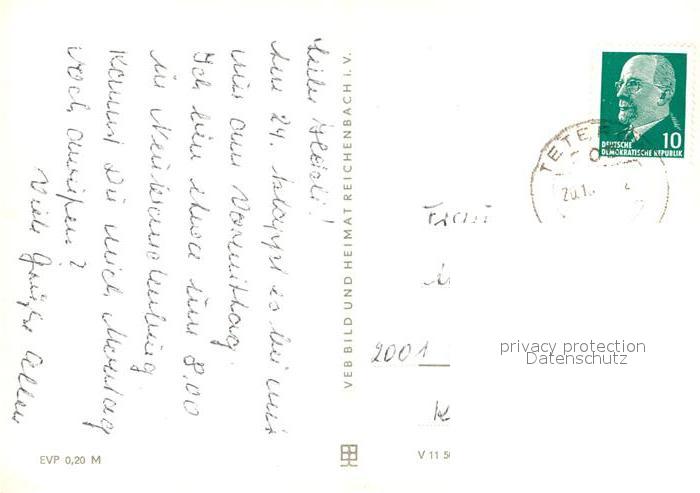 Liebe Heidi!
Am 24. klappt es bei mir
nur am Vormittag.
Ich bin etwa um 8.00
in Neubrandenburg.
Kannst Du mich Montag
noch anrufen?
Viele Grüße
VEB BILD UND HEIMAT REICHENBACH I. V.
EVP 0,20 M
V 11 50
DEUTSCHE
DEMOKRATISCHE REPUBLIK
10
TETER
Frau
2001
privacy protection
Datenschutz